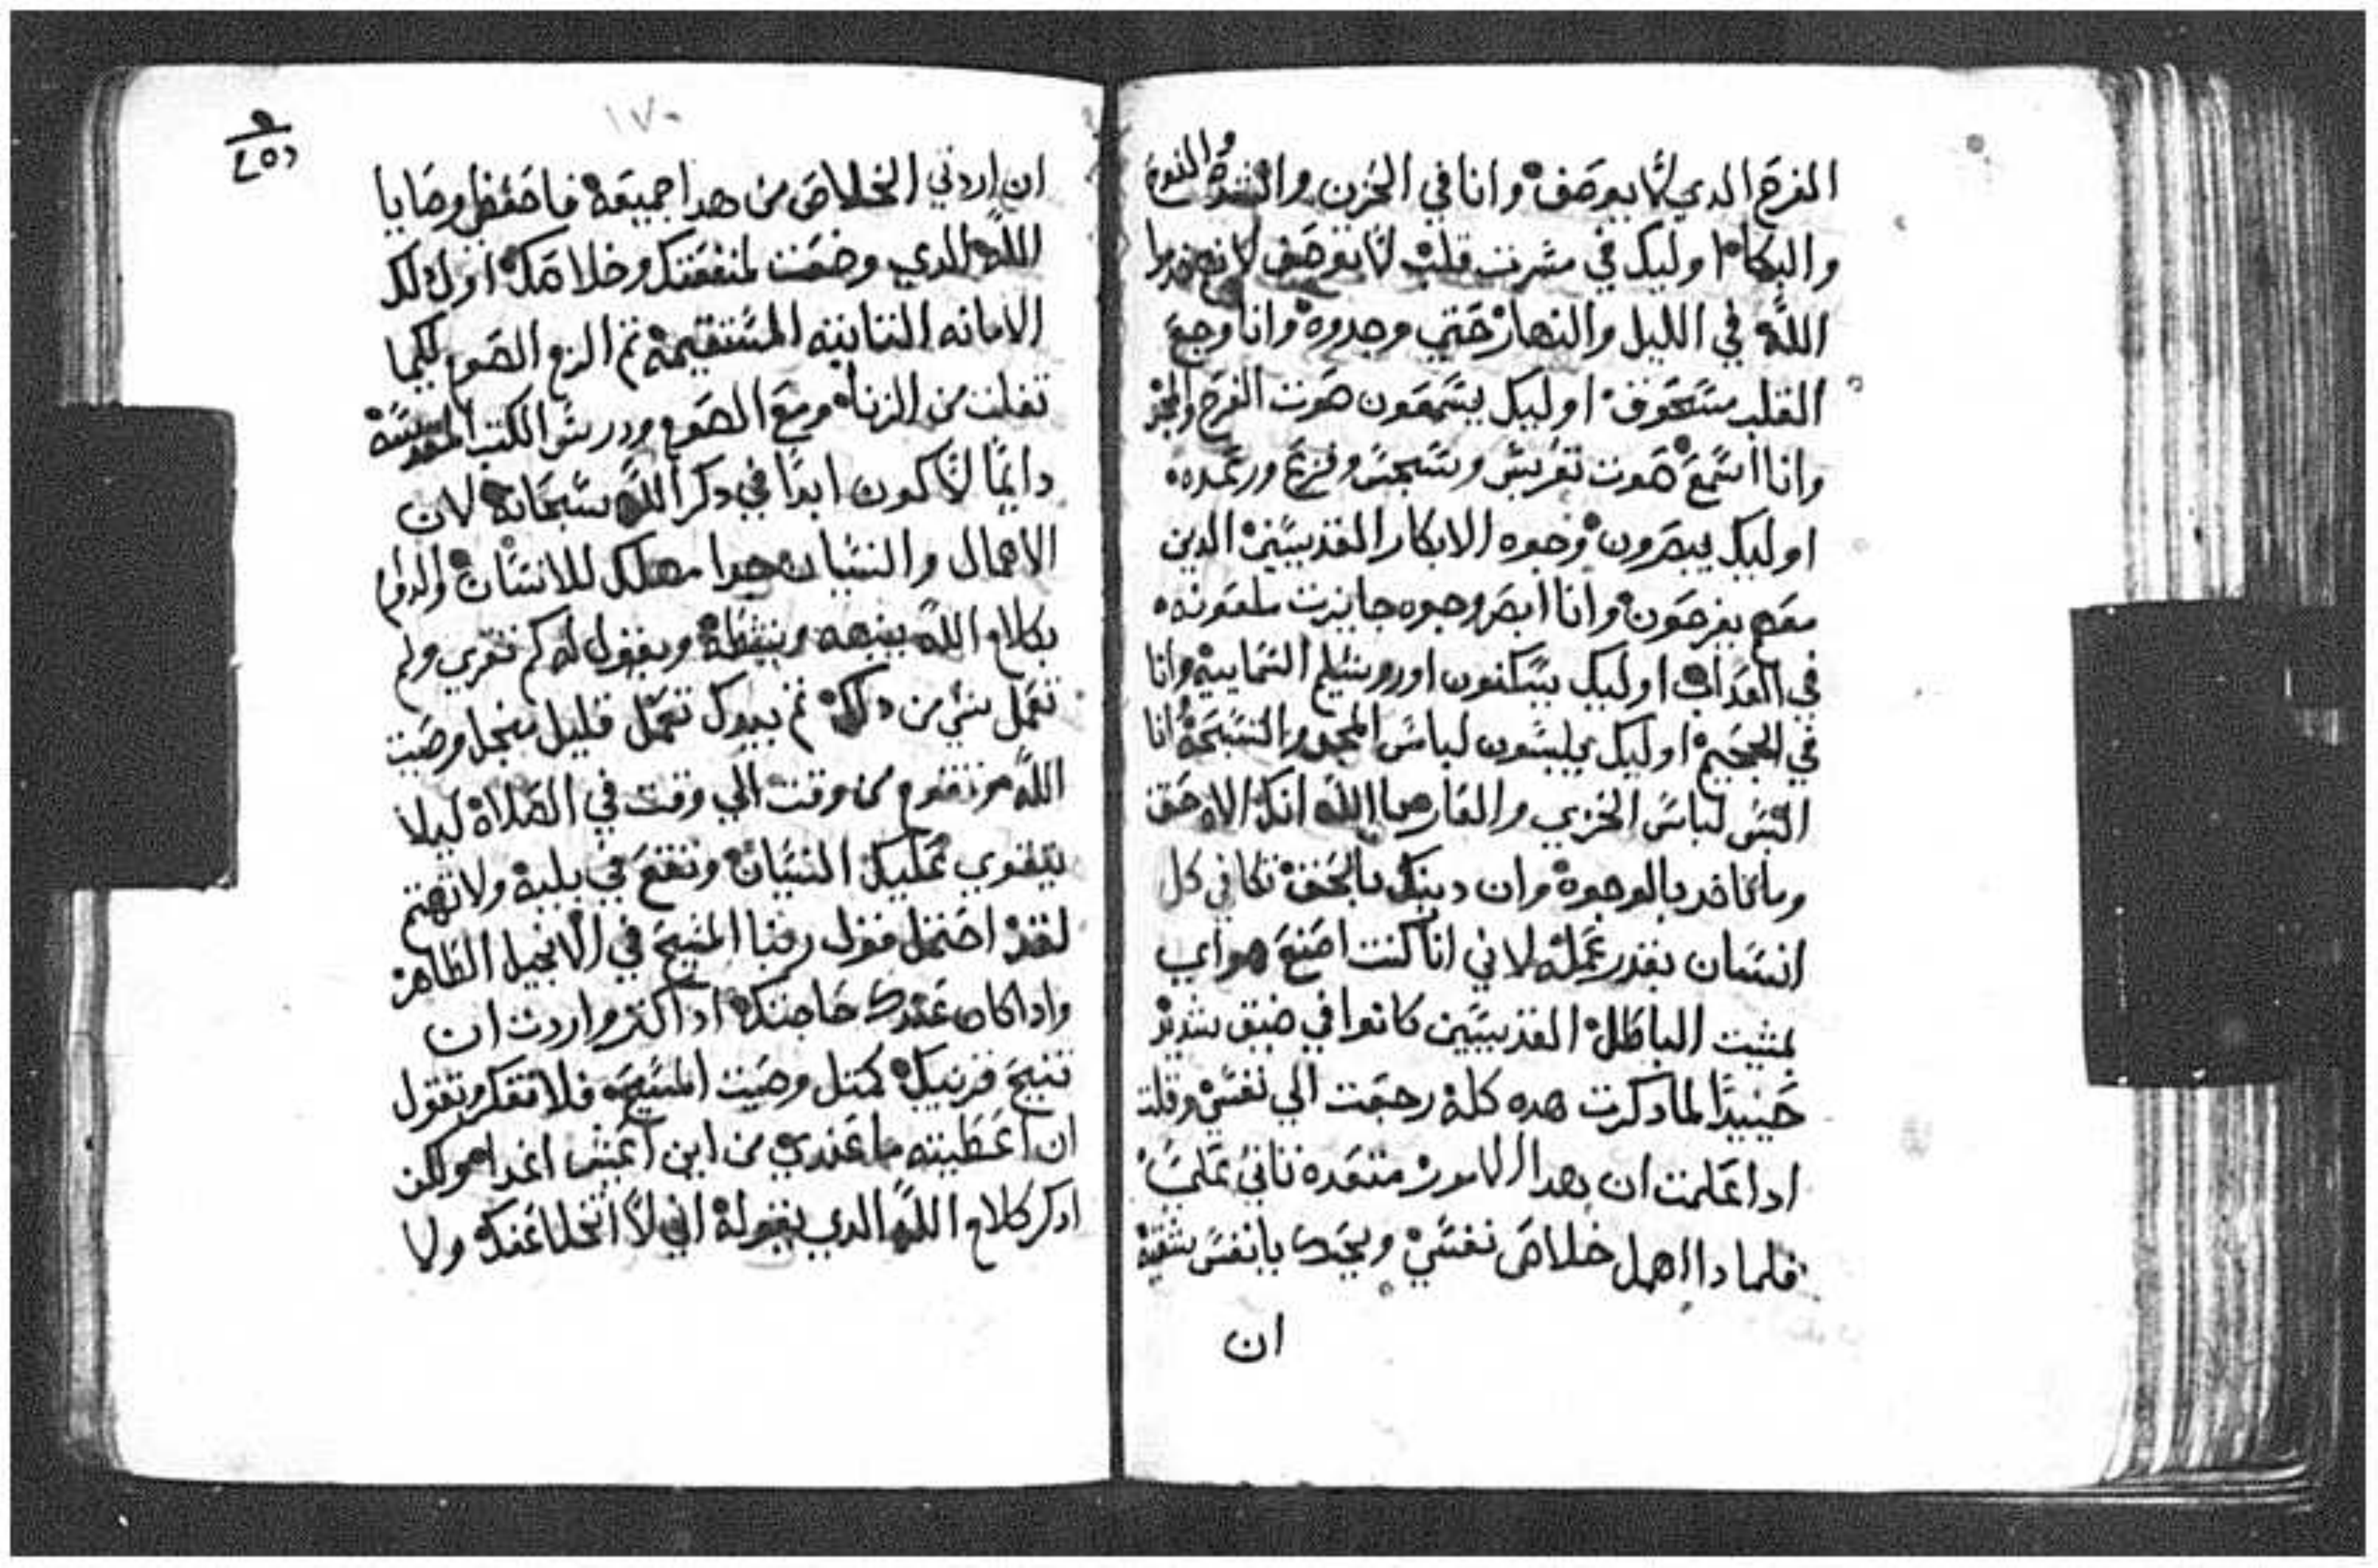 الفرح الدي لا يوصف وانا في الحزن والشده والنوح
والبكا اوليك في مسرت قلب لا توصف لانهم خدموا
الله في الليل والنهار حتي وجدوه وانا وجع
القلب ستخوف اوليك يسمعون صوت الفرح والمجد
وانا اسمع صوت وفزع ورعده
اوليك يبصرون وجوه الابكار القديسين الدين
معهم يفرحون وانا ابصر وجوه ملعونه
في العداب اوليك يسكنون اوروشليم السماييه وانا
في الجحيم اوليك يلبسون لباس المجد والتسبحه انا
البس لباس الخزي والعار يا الله انك الاه حق
وما تاخد بالوجوه وان دينك بالحق تكافي كل
انسان بقدر عمله لاني انا كنت اصنع هواي
بمشيت الباطل القديسين كانوا في ضيق شديد
حينيدا لما دكرت هده كله رجعت الي نفسي وقلت
ادا علمت ان هدا الامور متعده تاتي علي
فلمادا اهمل خلاص نفسي ويحك يا نفس شقيه
ان
١٧٠
ان اردتي الخلاص من هدا جميعه فاحفظي وصايا
الله الدي وضعت لمنفعتك وخلاصك اول لك
الامانه التابته المستقيمه تم الزم الصوم لكيما
تفلت من الزناه ومع الصوم ودرس الكتب المقدسه
دايما لاكون ابدا في دكر الله سبحانه لان
الاهمال والنسيان جدا مهلك للانسان والدوام
بكلام الله ينبهه وينيقظه ويقول له كم تقري ولم
تعمل شي من دلك تم يبدك تعمل قليل وصيت
الله وتقوم من وقت الي وقت في الصلاه ليلا
يتقوي عليك النسيان وتقع في بليه ولا تهتم
لغد احتمل قول ربنا المسيح في الانجيل الطاهر
وادا كان عندك حاجتك او اكتر واردت ان
تنيح قريبك كمتل وصيت المسيح فلا تفكر وتقول
ان اعطيته ما عندي من اين اعيش اغدا ولكن
ادكر كلام الله الدي يقوله اني لا اتخلا عنك ولا